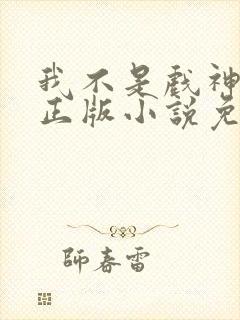 我不是戲神
正版小說免
師春雷